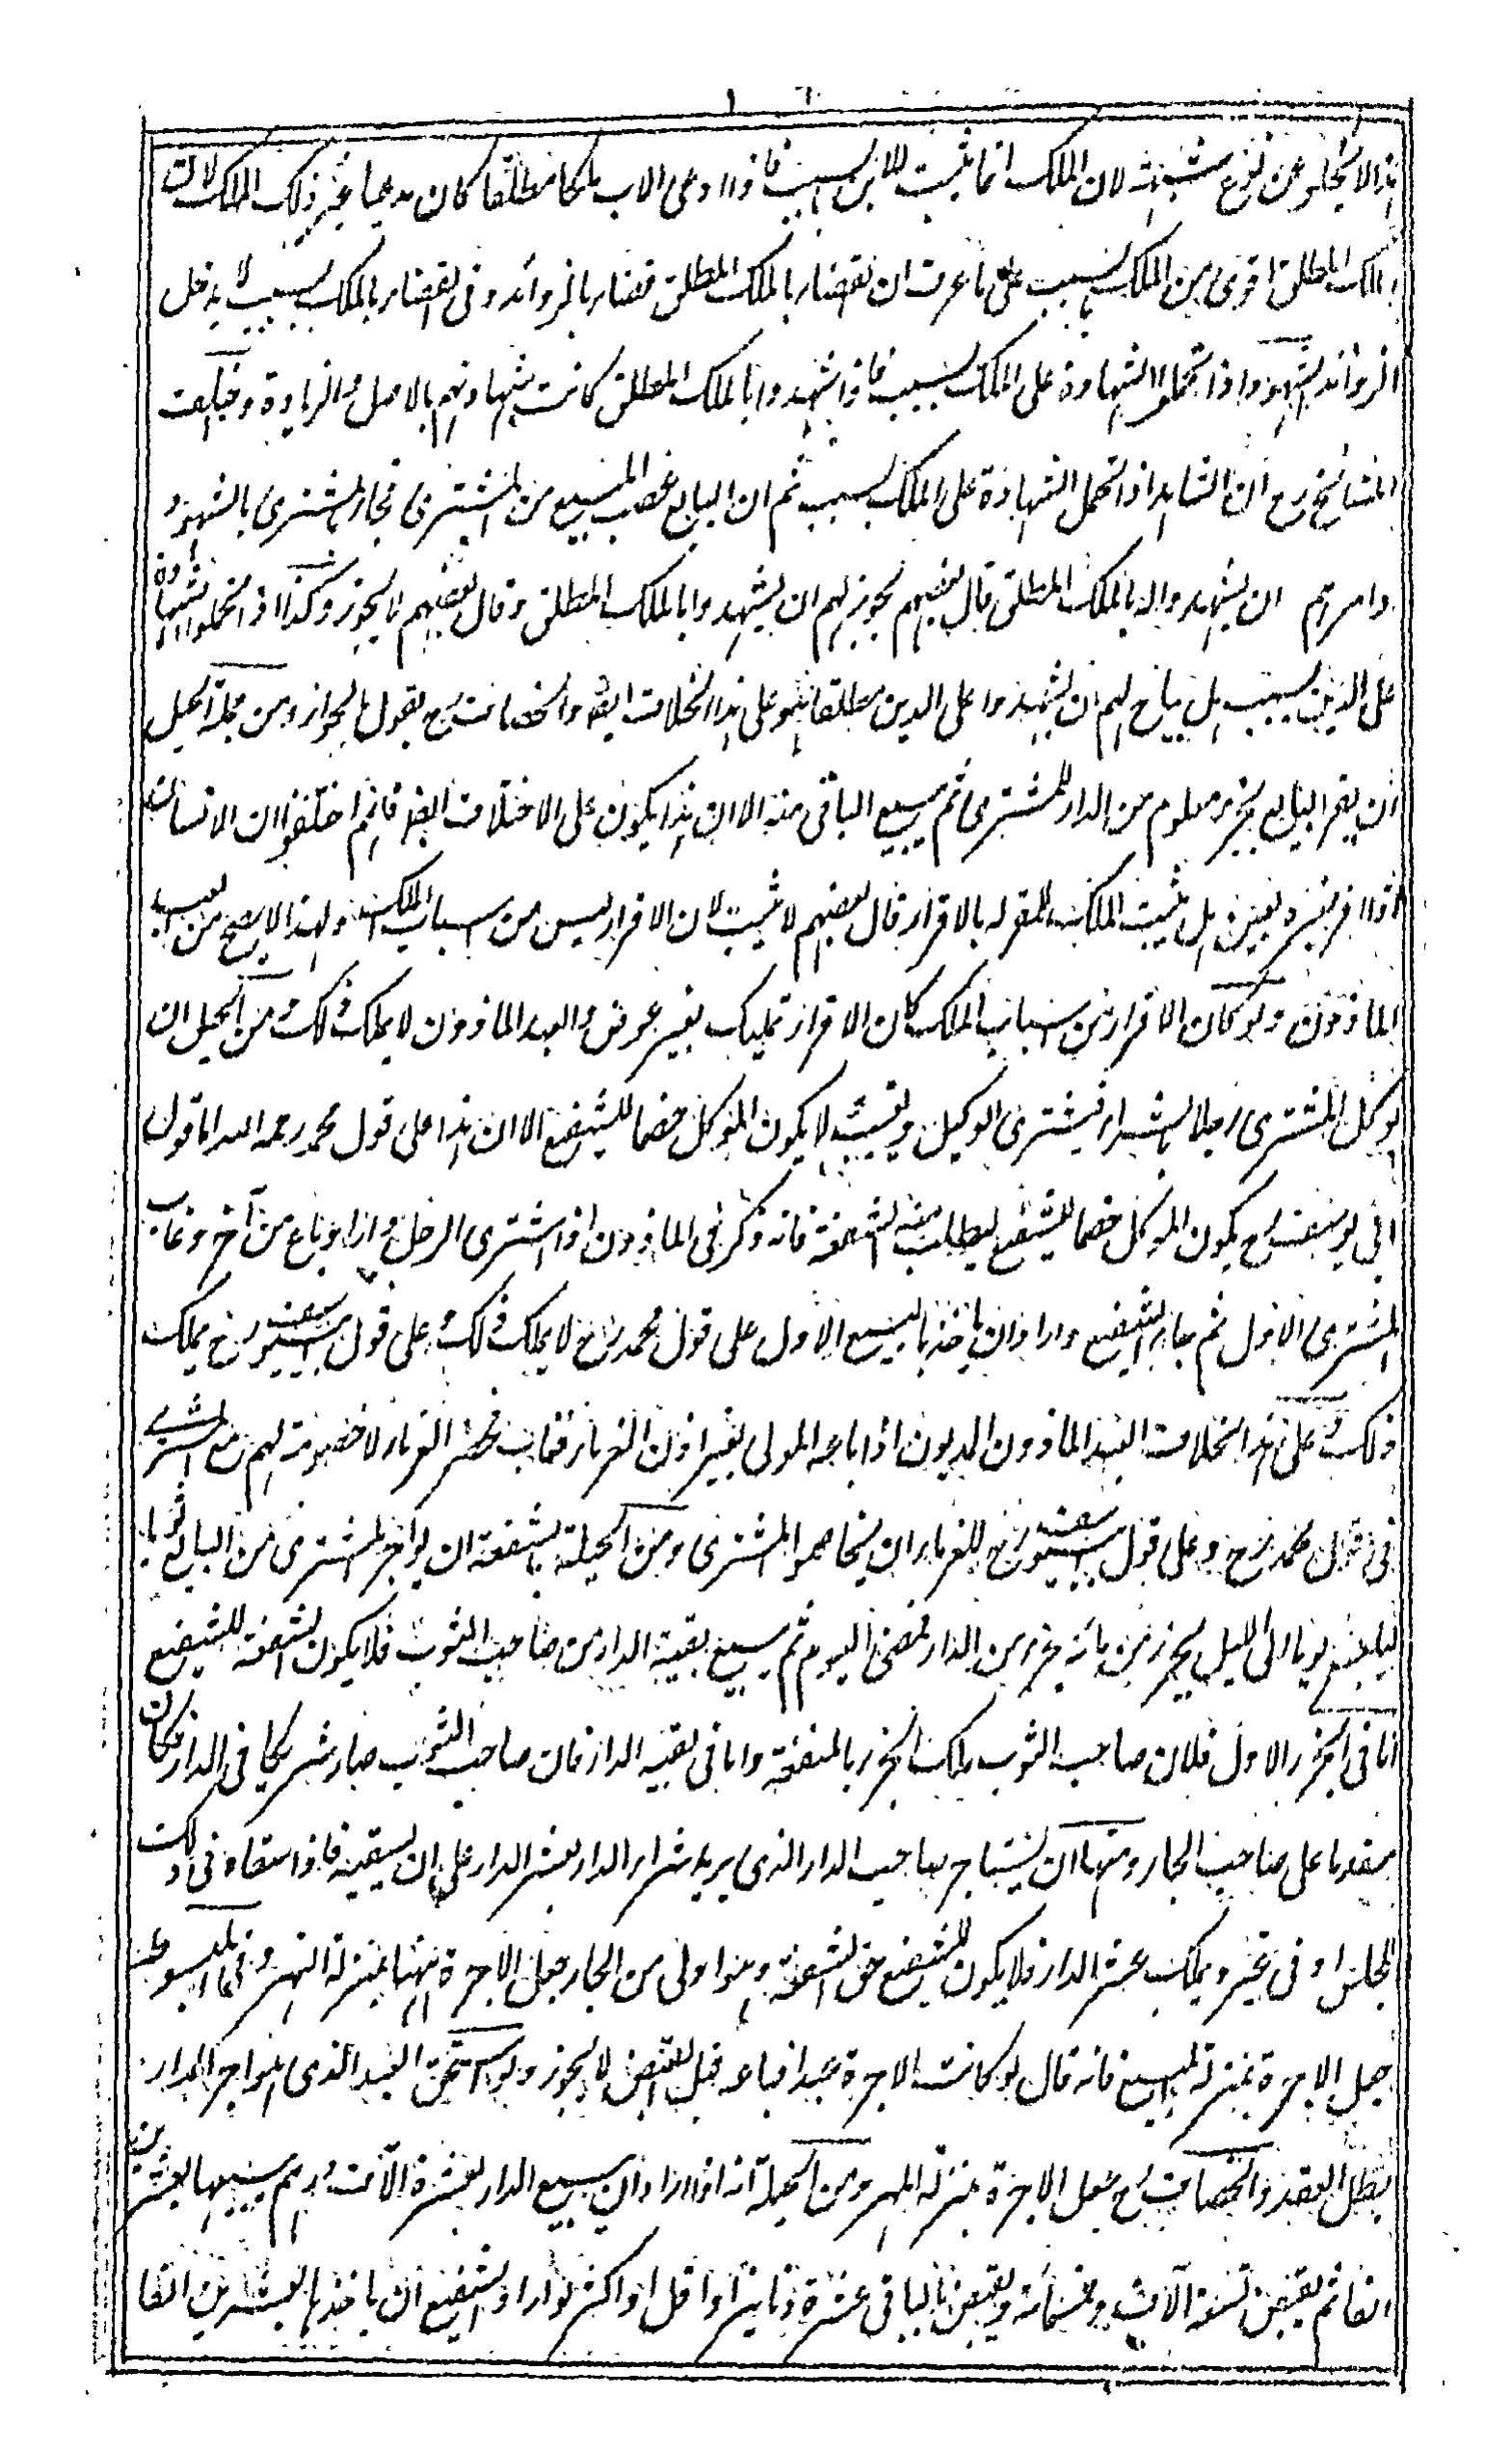 هذا لا يخلو عن نوع شبهة لان الملك انما يثبت للابن بسبب فاذا ادعى الاب ملكا مطلقا كان مدعيا غير ذلك الملك لان
الملك المطلق اقوى من الملك بسبب على ما عرف ان القضاء بالملك المطلق قضاء بالزوائد وفى القضاء بالملك بسبب لا يدخل
الزوائد الشهود اذا تحملوا الشهادة على الملك بسبب فاذا شهدوا بالملك المطلق كانت شهادتهم بالاصل والزيادة وختلفت
المشائخ رح ان الشاهد اذا تحمل الشهادة على الملك بسبب ثم ان البايع غصب المبيع من المشترى فجاء المشترى بالشهود
وامرهم ان يشهدوا له بالملك المطلق قال بعضهم يجوز لهم ان يشهدوا بالملك المطلق وقال بعضهم لا يجوز وكذا اذا تحملوا الشهادة
على الدين بسبب هل يباح لهم ان يشهدوا على الدين مطلقا فهو على هذا الخلاف ايضا والخصاف رح يقول بالجواز ومن جملة الحيل
ان يقر البايع بجزء معلوم من الدار للمشترى ثم يبيع الباقى منه الا ان هذا يكون على الاختلاف ايضا فانهم اختلفوا ان الانسان
اذا اقر لغيره بعين هل يثبت الملك للمقر له بالاقرار قال بعضهم لا يثبت لان الاقرار ليس من اسباب الملك ولهذا لا يصح من العبد
الماذون ولو كان الاقرار من اسباب الملك كان الاقرار تمليك بغير عوض والعبد الماذون لا يملك ذلك ومن الحيل ان
يوكل المشترى رجلا بالشراء فيشترى الوكيل ويغيب لا يكون الموكل خصما للشفيع الا ان هذا على قول محمد رحمه الله اما قول
ابى يوسف رح يكون الموكل خصما للشفيع ليطلب منه الشفعة فانه ذكر فى الماذون اذا اشترى الرجل دارا وباع من آخر وغاب
المشترى الاول ثم جاء الشفيع واراد ان ياخذ بالبيع الاول على قول محمد رح لا يملك ذلك وعلى قول ابى يوسف رح يملك
ذلك وعلى هذا الخلاف العبد الماذون المديون اذا باعه المولى بغير اذن الغرماء فغاب فحضر الغرماء لا خصومة لهم مع المشترى
فى قول محمد رح وعلى قول ابى يوسف رح للغرماء ان يخاصموا المشترى ومن الحيلة بالشفعة ان يواجر المشترى من البايع ثوبا
ليلبس يوما الى الليل بجزء من مائة جزء من الدار فمضى اليوم ثم يبيع بقية الدار من صاحب الثوب فلا يكون الشفعة للشفيع
اما فى الجزء الاول فلان صاحب الثوب ملك الجزء بالمنفعة واما فى بقية الدار فان صاحب الثوب صار شريكا فى الدار فكان
مقدما على صاحب الجار ومنها ان يستاجر صاحب الدار الذى يريد شراء الدار بعشر الدار على ان يسقيه فاذا سقاه فى ذلك
المجلس او فى غيره يملك عشر الدار فلا يكون للشفيع حق الشفعة وهو اولى من الجار جعل الاجرة هنا بمنزلة المهر وفى المبسوط
جعل الاجرة بمنزلة المبيع فانه قال لو كانت الاجرة عبدا فباعه قبل القبض لا يجوز ولو استحق العبد الذى هو اجر الدار
يبطل العقد والخصاف رح جعل الاجرة بمنزلة المهر ومن الحيلة انه اذا اراد ان يبيع الدار بعشرة آلاف درهم يبيعها بعشرين
الفا ثم يقبض تسعة آلاف وخمسمائة ويقبض بالباقى عشرة دنانير او اقل او اكثر لو اراد الشفيع ان ياخذها بعشرين الفا